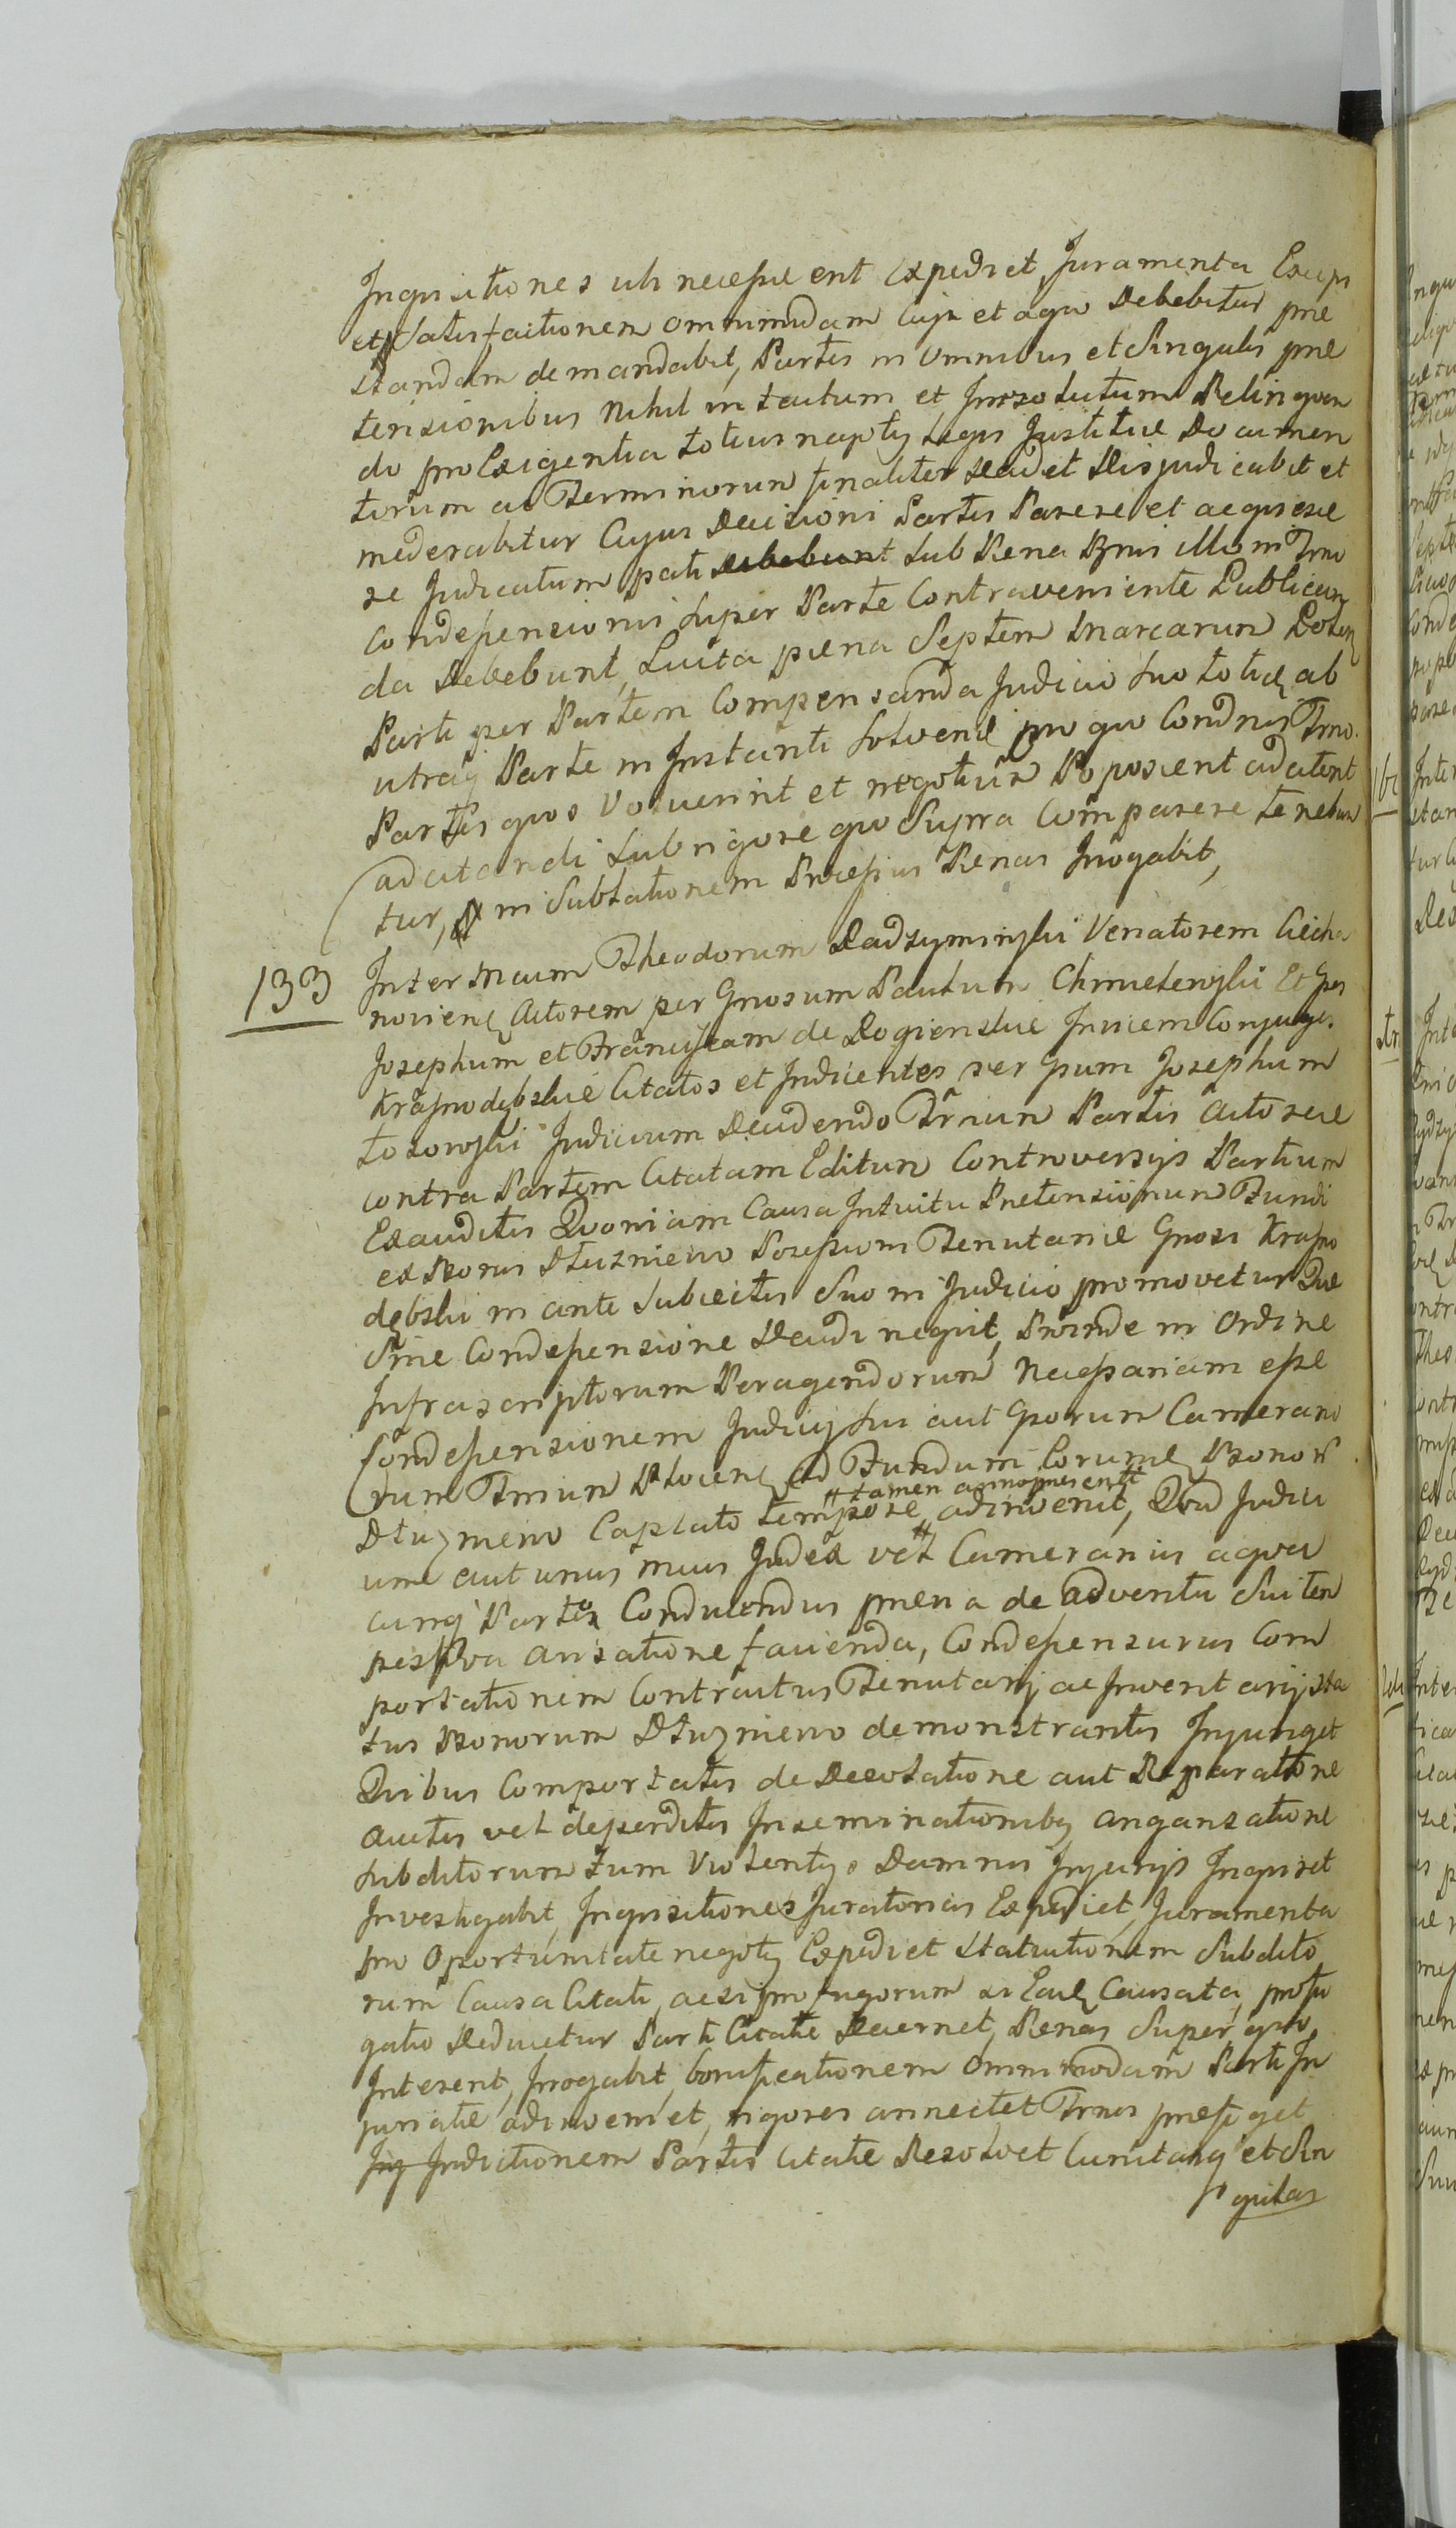 Inquisitiones ubi necesse erit expediet Juramenta Excip
et Satisfactionem omnimodam cujn et a quo Debebitur præ
standam demandabit, Partes in omnibus et Singulis præ
tensionibus Nihil intactum et Irresolutum Relinquen
do pro Exigentia totius negotij Legis Justitiæ Documen
torum ac Terminorum finaliter Decidet Disjudicabit et
mederabitur Cujus Decisioni Partes Parere et acquiesce
re Judicatum pati Debebunt sub Pœna Bnnis illo in Trno
Condescensionis super Parte Contraveniente Publican
da Debebunt, Luita pœna Septem Marcarum
Parti per Partem Compensanda Judicio suo totidem ab
utraq Parte in Instanti Solvend pro quo Condnis Trno
Partes quos Voluerint et negotium Poposcent adcitent
adcitandi sub rigore quo Supra Comparere tenebun
tur, in Subtationem Præcipius Pœnas Irrogabit,
133 Inter Mcum Theodorum Radzyminski Venatorem Ciecha
novien Actorem per Gnosum Paulum Chmielenski Et Gsos
Josephum et Franciscam de Rogienskie Invicem Conjuges
Krasnodębskie Citatos et Inducentes per Gsum Josephum
Kosowski Judicium Decidendo Trnum Partis Actoreæ
contra Partem Citatam Editum Controversijs Partium
Exauditis Quoniam Causa Intuitu Prætensionum Fundi
ex Bonis Dłużniewo Possessioni Tenutariæ Gnosi Krasno
dębski in ante Subiectis Suo in Judicio promovetur Quæ
Sine Condescensione Decidi nequit, Proinde in Ordine
Infrascriptorum Peragendorum Necessariam esse
Condescensionem Judicij sui aut Gsorum Camerano
rum Trnum Plocen ad Fundum Eorund Bonor
Dłużniewo Captato tempore # tamen anno præsenti # adinvenit, Quod Judici
um aut unus Mcus Judex vel Camerarius a qua
cunq Parte Conducendus prævia de adventu Sui tem
pestiva avisatione facienda, Condescensurus Com
portationem Contractus Tenutarij ac Inventarij Sta
tus Bonorum Dłużniewo demonstrantis Injunget
Quibus Comportatis de Desolatione aut Reparatione
auctis vel deperditis Inseminationibq angarisatione
subditorum tum Violentijs Damnis Injurijs Inquiret
Investigabit, Inquisitiones Juratorias Expediet, Juramenta
pro Oportunitate negotij Expediet Statuitionem Subdito
rum Causa Citati, ac si profugorum si Eaud Causata, profu
gatio Deducetur Parti Citatæ Decernet, Pœnas Super quo
Intererit, Irrogabit, bonificationem Omnimodam Parti In
juriatæ adinveniet, rigores annectet Trnos præfiget
Inq Indictionem Partis Citatæ Resolvet Cunctaq et Sin
gulas